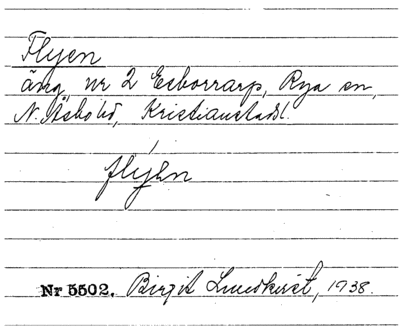 Flyen
äng, nr 2 Esborrarp, Rya sn,
N. Åsbo hd, Kristianstads l.
flýən
Nr 5502. Birgit Lundkvist, 1938.